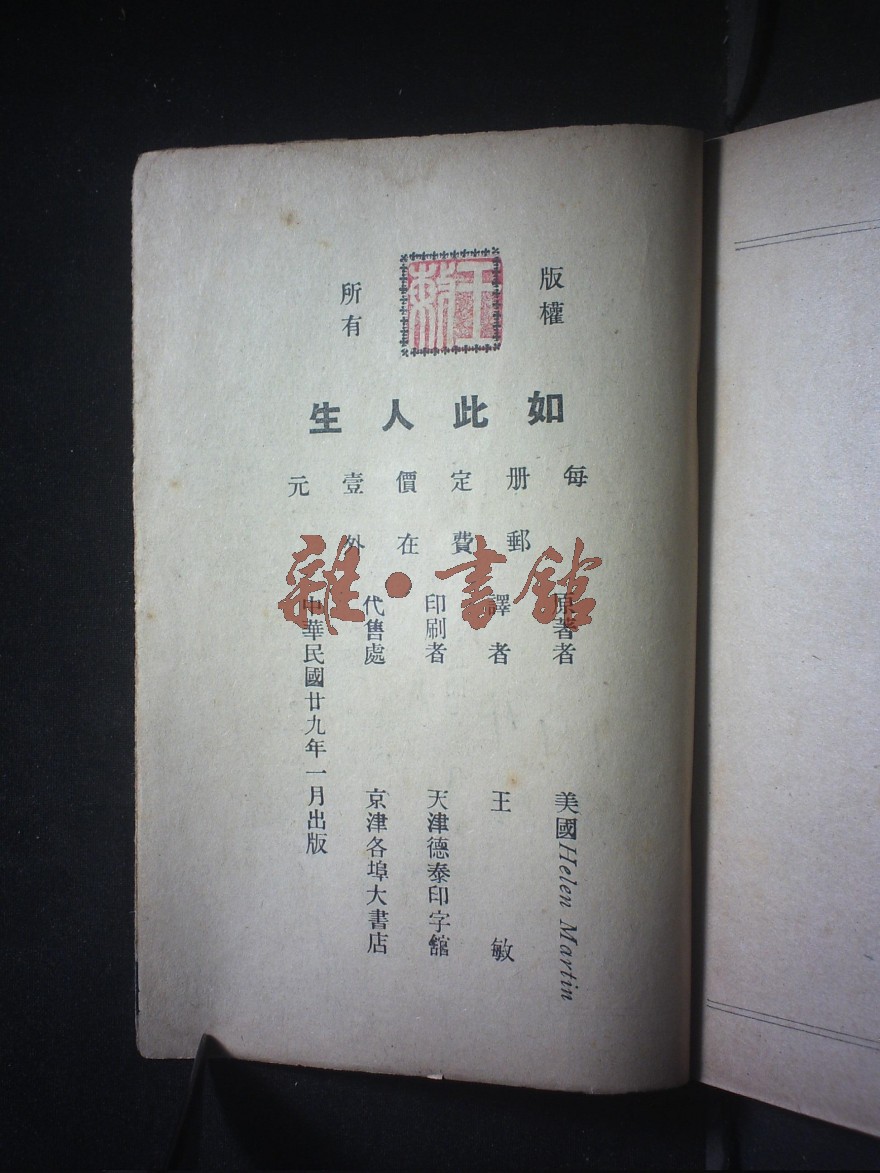 版權
所有
王敏
如此人生
每册定價壹元
郵費在外
原著者 美國Helen Martin
譯者 王敏
印刷者 天津德泰印字館
代售處 京津各埠大書店
中華民國廿九年一月出版
雜·書館